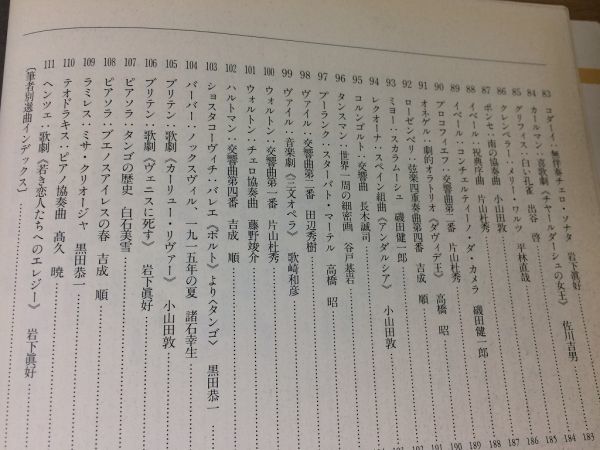 83 コダイ：無伴奏チェロ・ソナタ 岩下眞好 183
84 カールマン：喜歌劇《チャールダーシュの女王》 佐川吉男 184
85 グリフィス：白い孔雀 出谷 啓 185
86 クレンペラー：メリー・ワルツ 平林直哉 186
87 ポンセ：南の協奏曲 小山田敦 187
88 イベール：祝典序曲 片山杜秀 188
89 イベール：コンチェルティーノ・ダ・カメラ 磯田健一郎 189
90 プロコフィエフ：交響曲第二番 片山杜秀 190
91 オネゲル：劇的オラトリオ《ダヴィデ王》 高橋 昭
92 ローゼンベリ：弦楽四重奏曲第四番 吉成 順
93 ミヨー：スカラムーシュ 磯田健一郎
94 レクオーナ：スペイン組曲《アンダルシア》 小山田敦
95 コルンゴルト：交響曲 長木誠司
96 タンスマン：世界一周の細密画 谷戸基岩
97 プーランク：スターバト・マーテル 高橋 昭
98 ヴァイル：交響曲第二番 田辺秀樹
99 ヴァイル：音楽劇《三文オペラ》 歌崎和彦
100 ウォルトン：交響曲第一番 片山杜秀
101 ウォルトン：チェロ協奏曲 藤野竣介
102 ハルトマン：交響曲第四番 吉成 順
103 ショスタコーヴィチ：バレエ《ボルト》より〈タンゴ〉 黒田恭一
104 バーバー：ノックスヴィル、一九一五年の夏 諸石幸生
105 ブリテン：歌劇《カーリュー・リヴァー》 小山田敦
106 ブリテン：歌劇《ヴェニスに死す》 岩下眞好
107 ピアソラ：タンゴの歴史 白石美雪
108 ピアソラ：ブエノスアイレスの春 吉成 順
109 ラミレス：ミサ・クリオージャ 黒田恭一
110 テオドラキス：ピアノ協奏曲 髙久 暁
111 ヘンツェ：歌劇《若き恋人たちへのエレジー》 岩下眞好
〔筆者別選曲インデックス〕